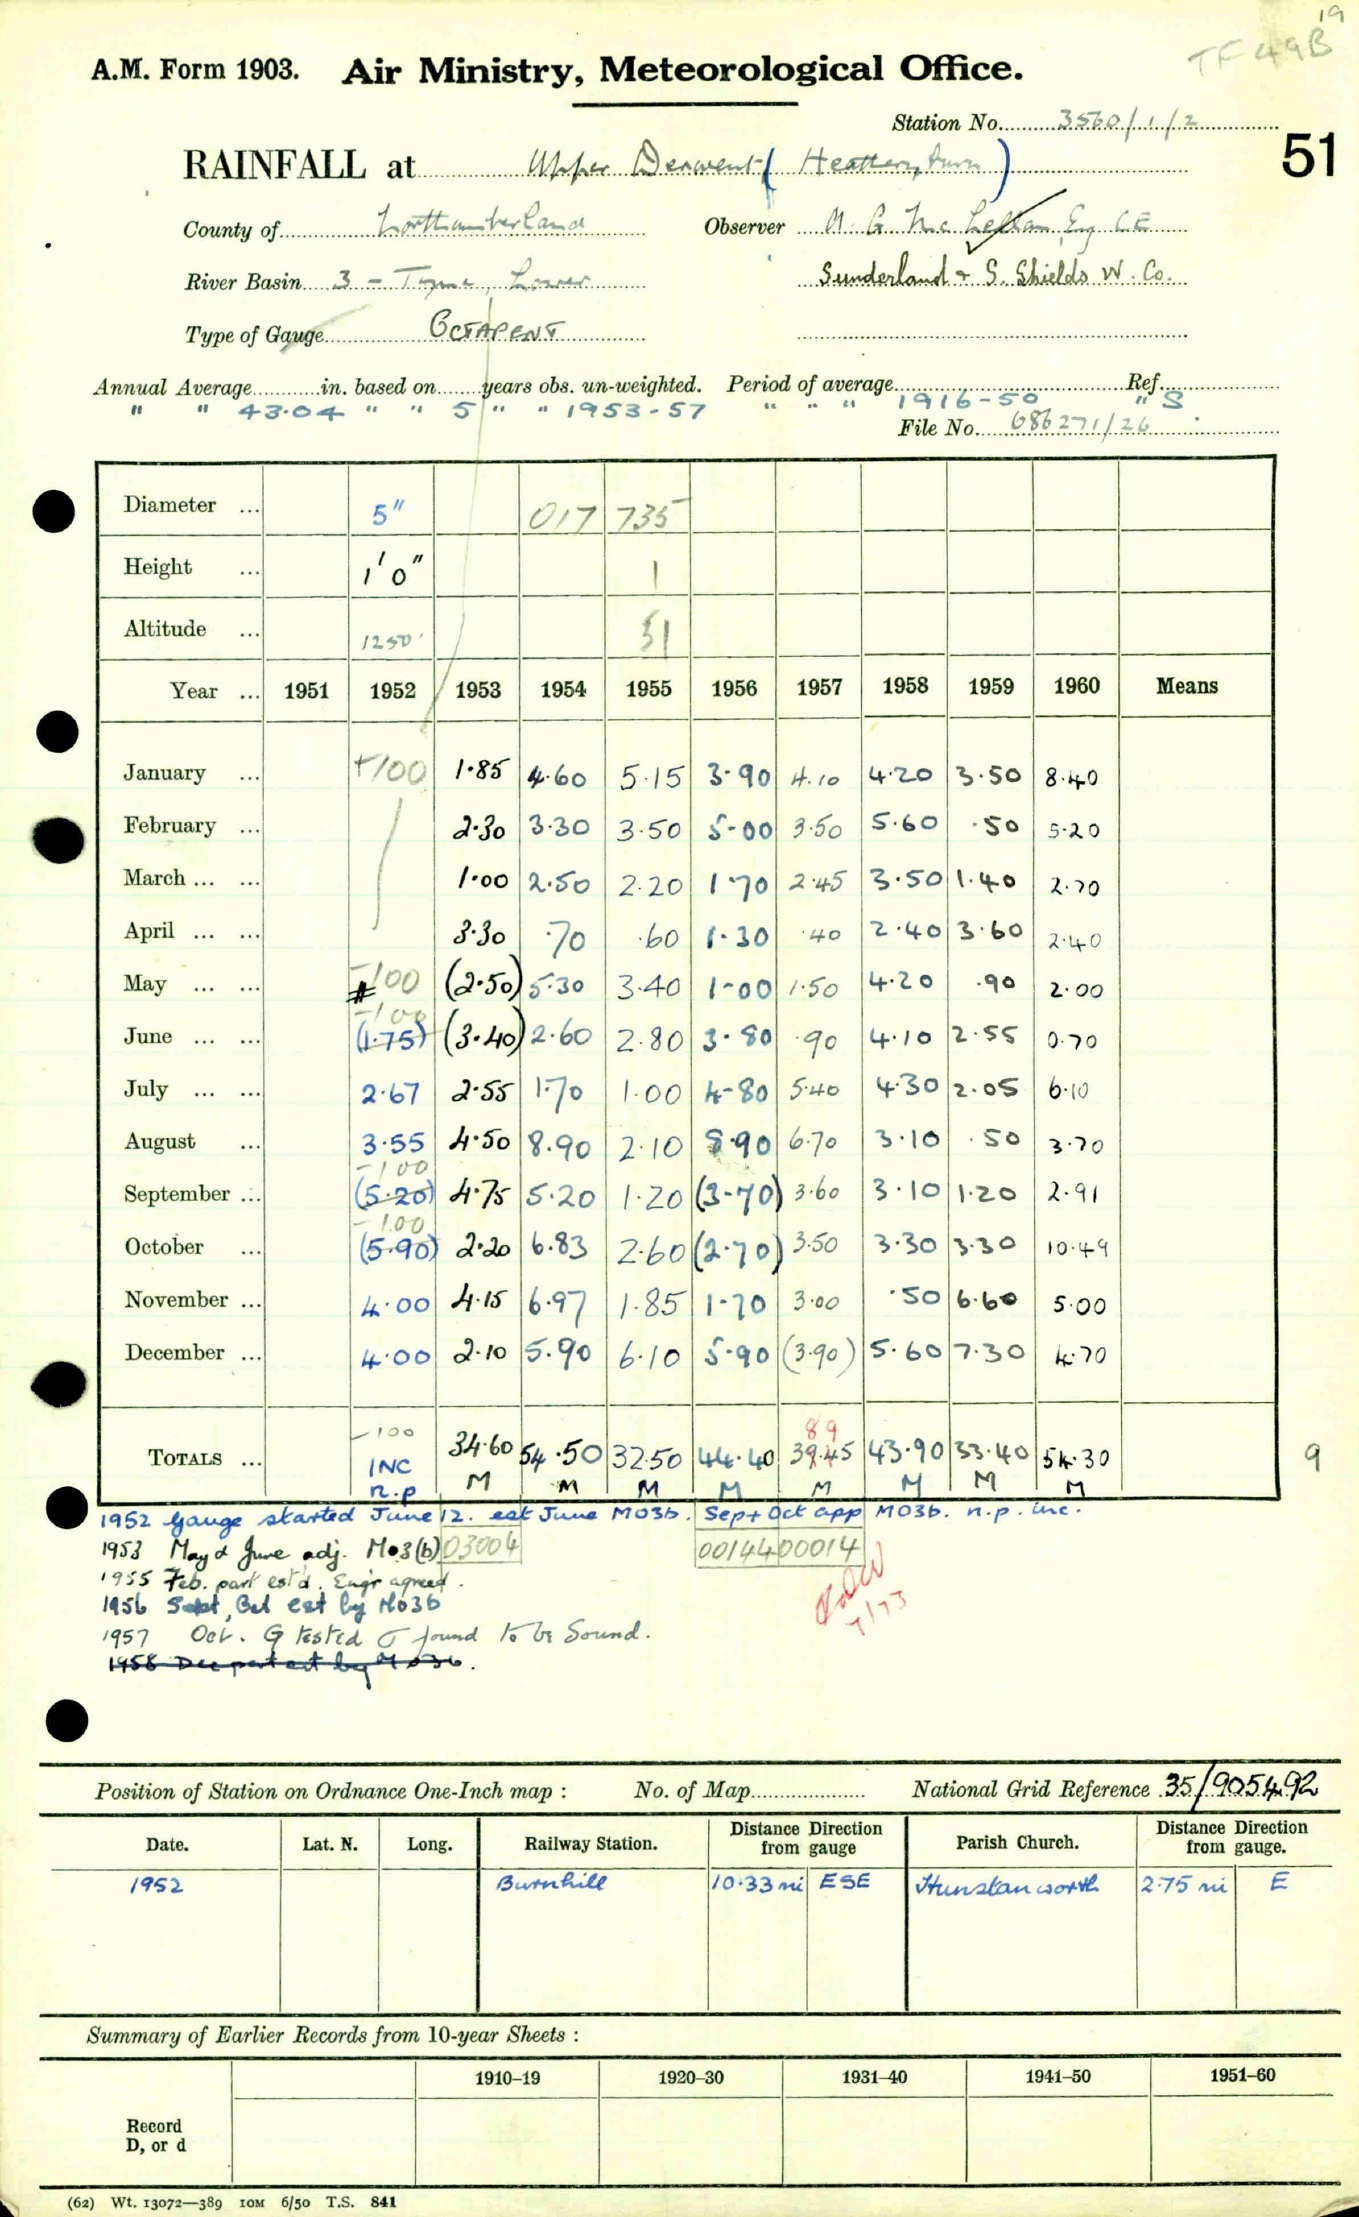 19
TF 49B
A.M. Form 1903. Air Ministry, Meteorological Office.
Station No. 3560/1/2
51
RAINFALL at Upper Derwent (Heathery Burn)
County of Northumberland Observer N. G. Mc Lellan, Esq CE
River Basin 3 - Tyne, Lower Sunderland & S. Shields W. Co.
Type of Gauge OCTAPENT
Annual Average in. based on years obs. un-weighted. Period of average Ref.
" " 43.04 " " 5 " " 1953-57 " " " 1916-50 " S
File No. 686271/26
Diameter ... 5" 017 735
Height ... 1'0" 1
Altitude ... 1250' 51
Year ... 1951 1952 1953 1954 1955 1956 1957 1958 1959 1960 Means
January ... -100 1.85 4.60 5.15 3.90 4.10 4.20 3.50 8.40
February ... 2.30 3.30 3.50 5.00 3.50 5.60 .50 5.20
March ... ... 1.00 2.50 2.20 1.70 2.45 3.50 1.40 2.70
April ... ... 3.30 .70 .60 1.30 .40 2.40 3.60 2.40
May ... ... -100 (2.50) 5.30 3.40 1.00 1.50 4.20 .90 2.00
-100
June ... ... (1.75) (3.40) 2.60 2.80 3.80 .90 4.10 2.55 0.70
July ... ... 2.67 2.55 1.70 1.00 4.80 5.40 4.30 2.05 6.10
August ... 3.55 4.50 8.90 2.10 8.90 6.70 3.10 .50 3.70
-100
September ... (5.20) 4.75 5.20 1.20 (3.70) 3.60 3.10 1.20 2.91
-100
October ... (5.90) 2.20 6.83 2.60 (2.70) 3.50 3.30 3.30 10.49
November ... 4.00 4.15 6.97 1.85 1.70 3.00 .50 6.60 5.00
December ... 4.00 2.10 5.90 6.10 5.90 (3.90) 5.60 7.30 4.70
-100 89
TOTALS ... INC 34.60 54.50 32.50 44.40 39.45 43.90 33.40 54.30 9
n.p M M M M M M M M
1952 Gauge started June 12. est June MO3b. Sept Oct app MO3b. n.p. inc.
1953 May & June adj. MO3(b) 03004 00144 00014
1955 Feb. part est'd. Eng'r agreed.
1956 Sept, Oct est by MO3b
7/73
1957 Oct. G tested & found to be Sound.
1958 Dec part est by MO3b.
Position of Station on Ordnance One-Inch map : No. of Map National Grid Reference 35/905492
Date. Lat. N. Long. Railway Station. Distance from Direction gauge Parish Church. Distance from Direction gauge.
1952 Burnhill 10.33 mi ESE Hunstanworth 2.75 mi E
Summary of Earlier Records from 10-year Sheets :
1910–19 1920–30 1931–40 1941–50 1951–60
Record
D, or d
(62) Wt. 13072—389 10M 6/50 T.S. 841